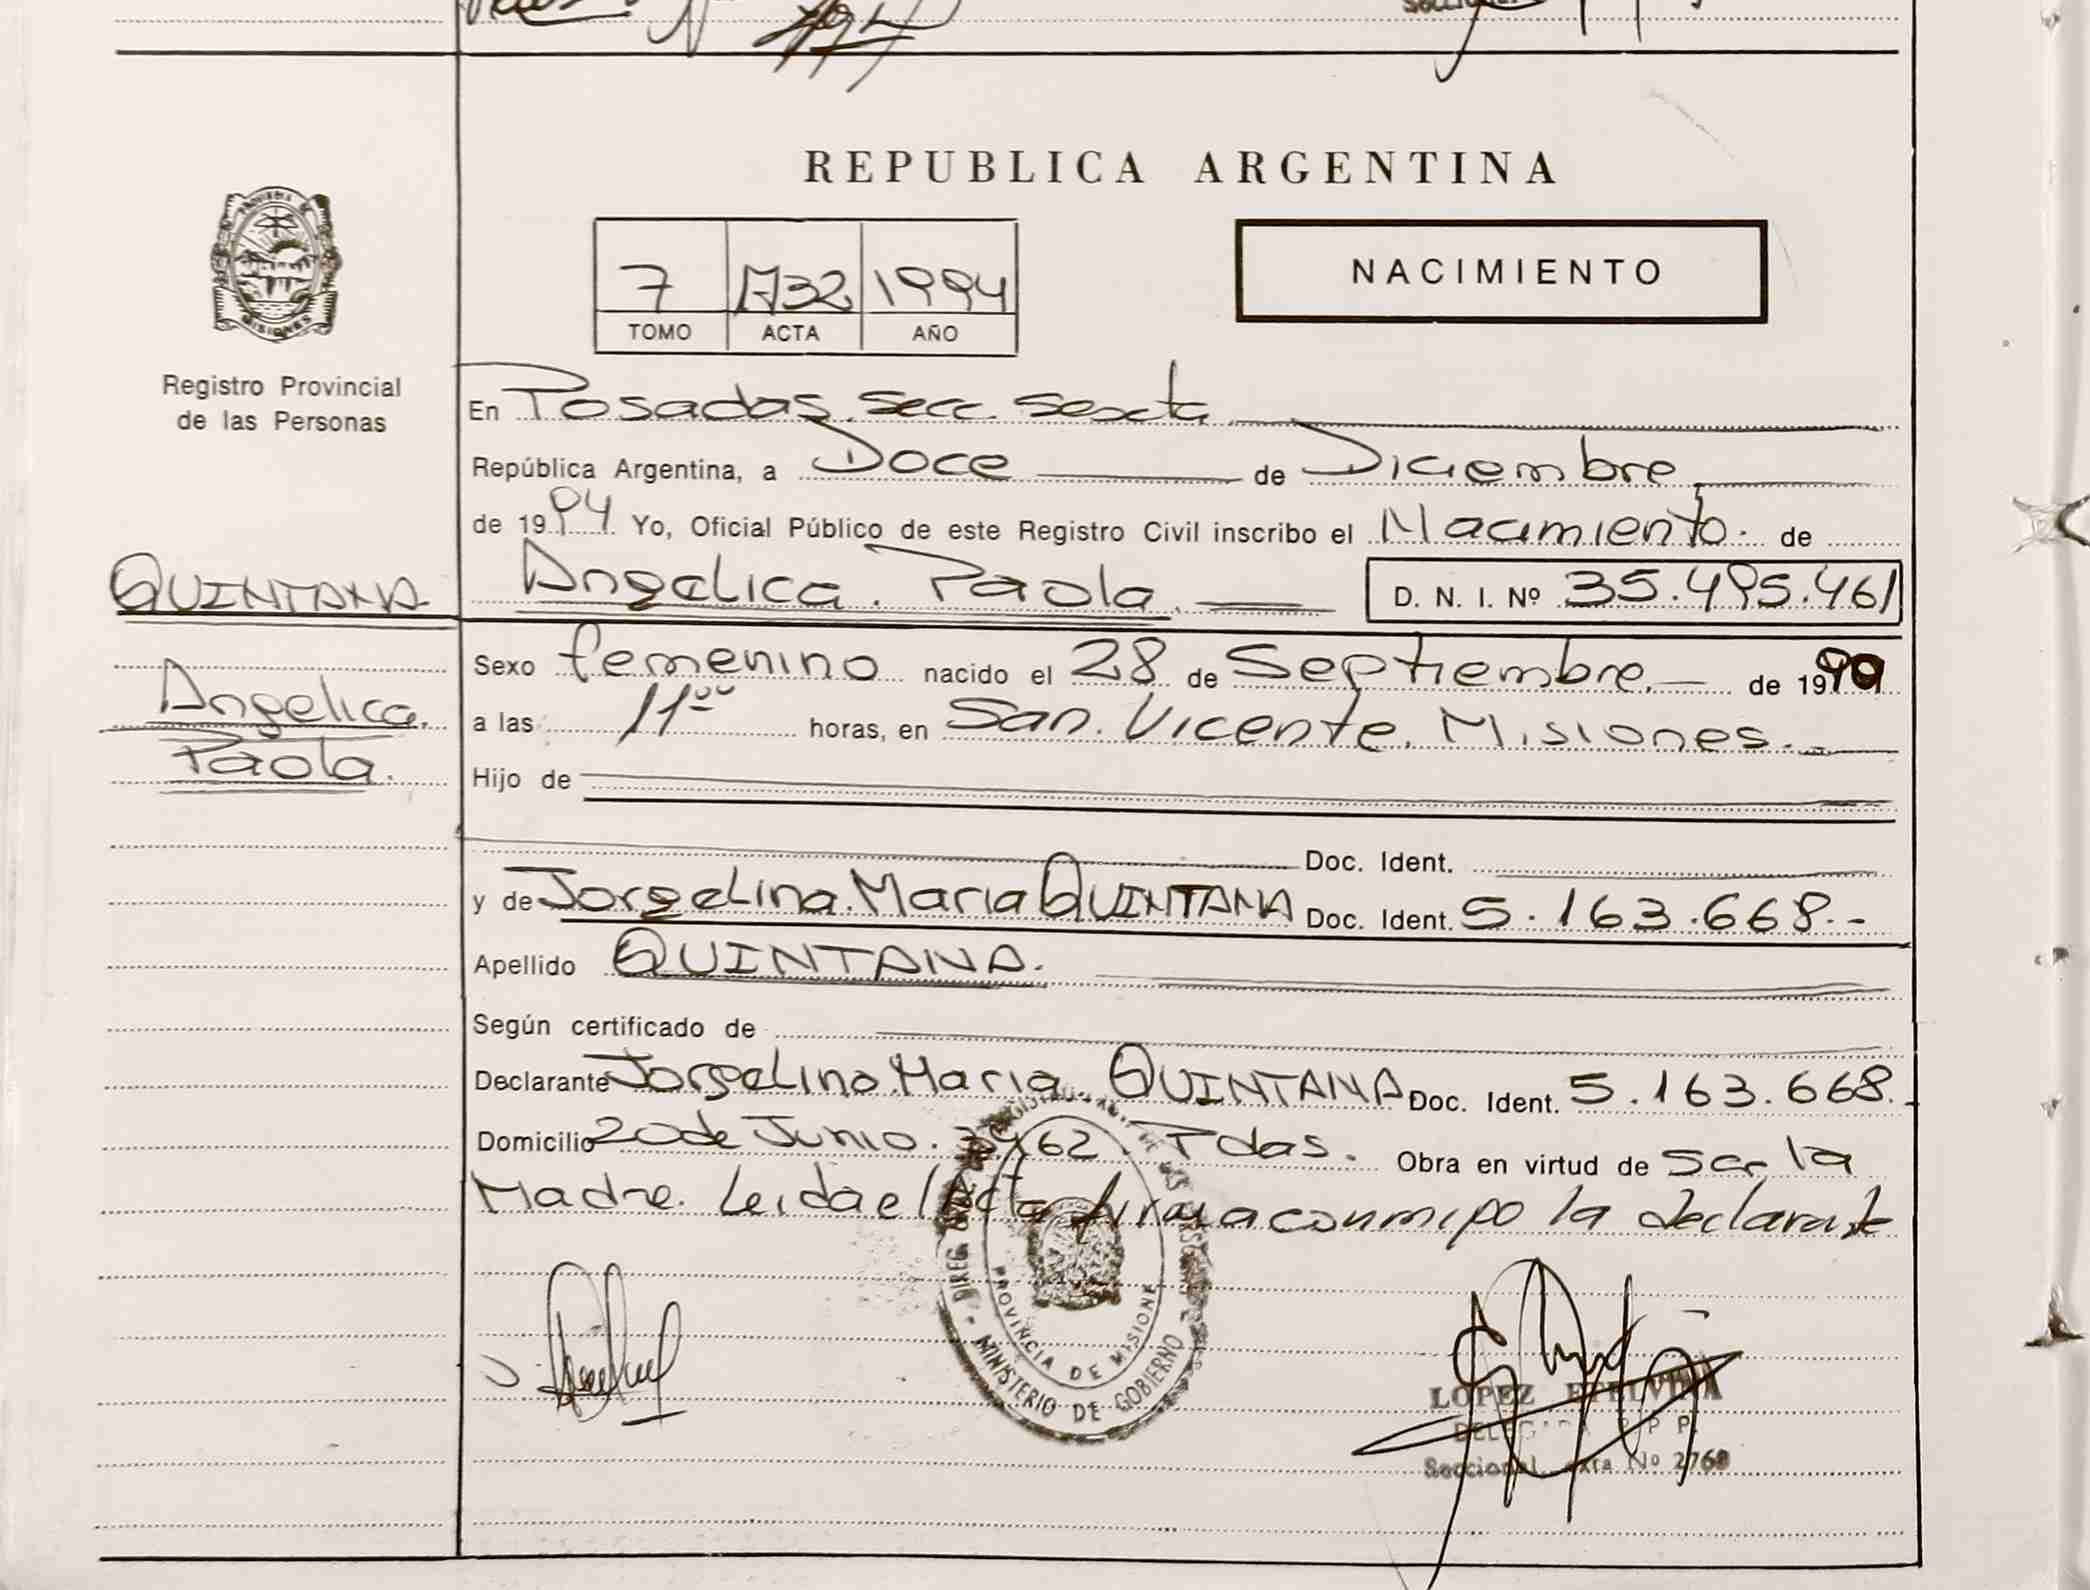 REPUBLICA ARGENTINA
7 1732 1994
TOMO ACTA AÑO
NACIMIENTO
MISIONES
Registro Provincial
de las Personas
En Posadas. Secc. Sexta
República Argentina, a Doce de Diciembre
de 1994 Yo, Oficial Público de este Registro Civil inscribo el Nacimiento. de
QUINTANA
Angelica. Paola. D. N. I. Nº 35.495.461
Angelica.
Paola.
Sexo femenino nacido el 28 de Septiembre. de 1990
a las 11ºº horas, en San. Vicente. Misiones.
Hijo de
Doc. Ident.
y de Jorgelina. Maria QUINTANA Doc. Ident. 5.163.668.-
Apellido QUINTANA.
Según certificado de
Declarante Jorgelina. Maria. QUINTANA Doc. Ident. 5.163.668.
Domicilio 20 de Junio. 62 Pdas. Obra en virtud de ser la
Madre. Leida el Acta firma conmigo la declarante
PROVINCIA DE MISIONE
MINISTERIO DE GOBIERNO
LOPEZ ETELVINA
Seccional Nº 2768